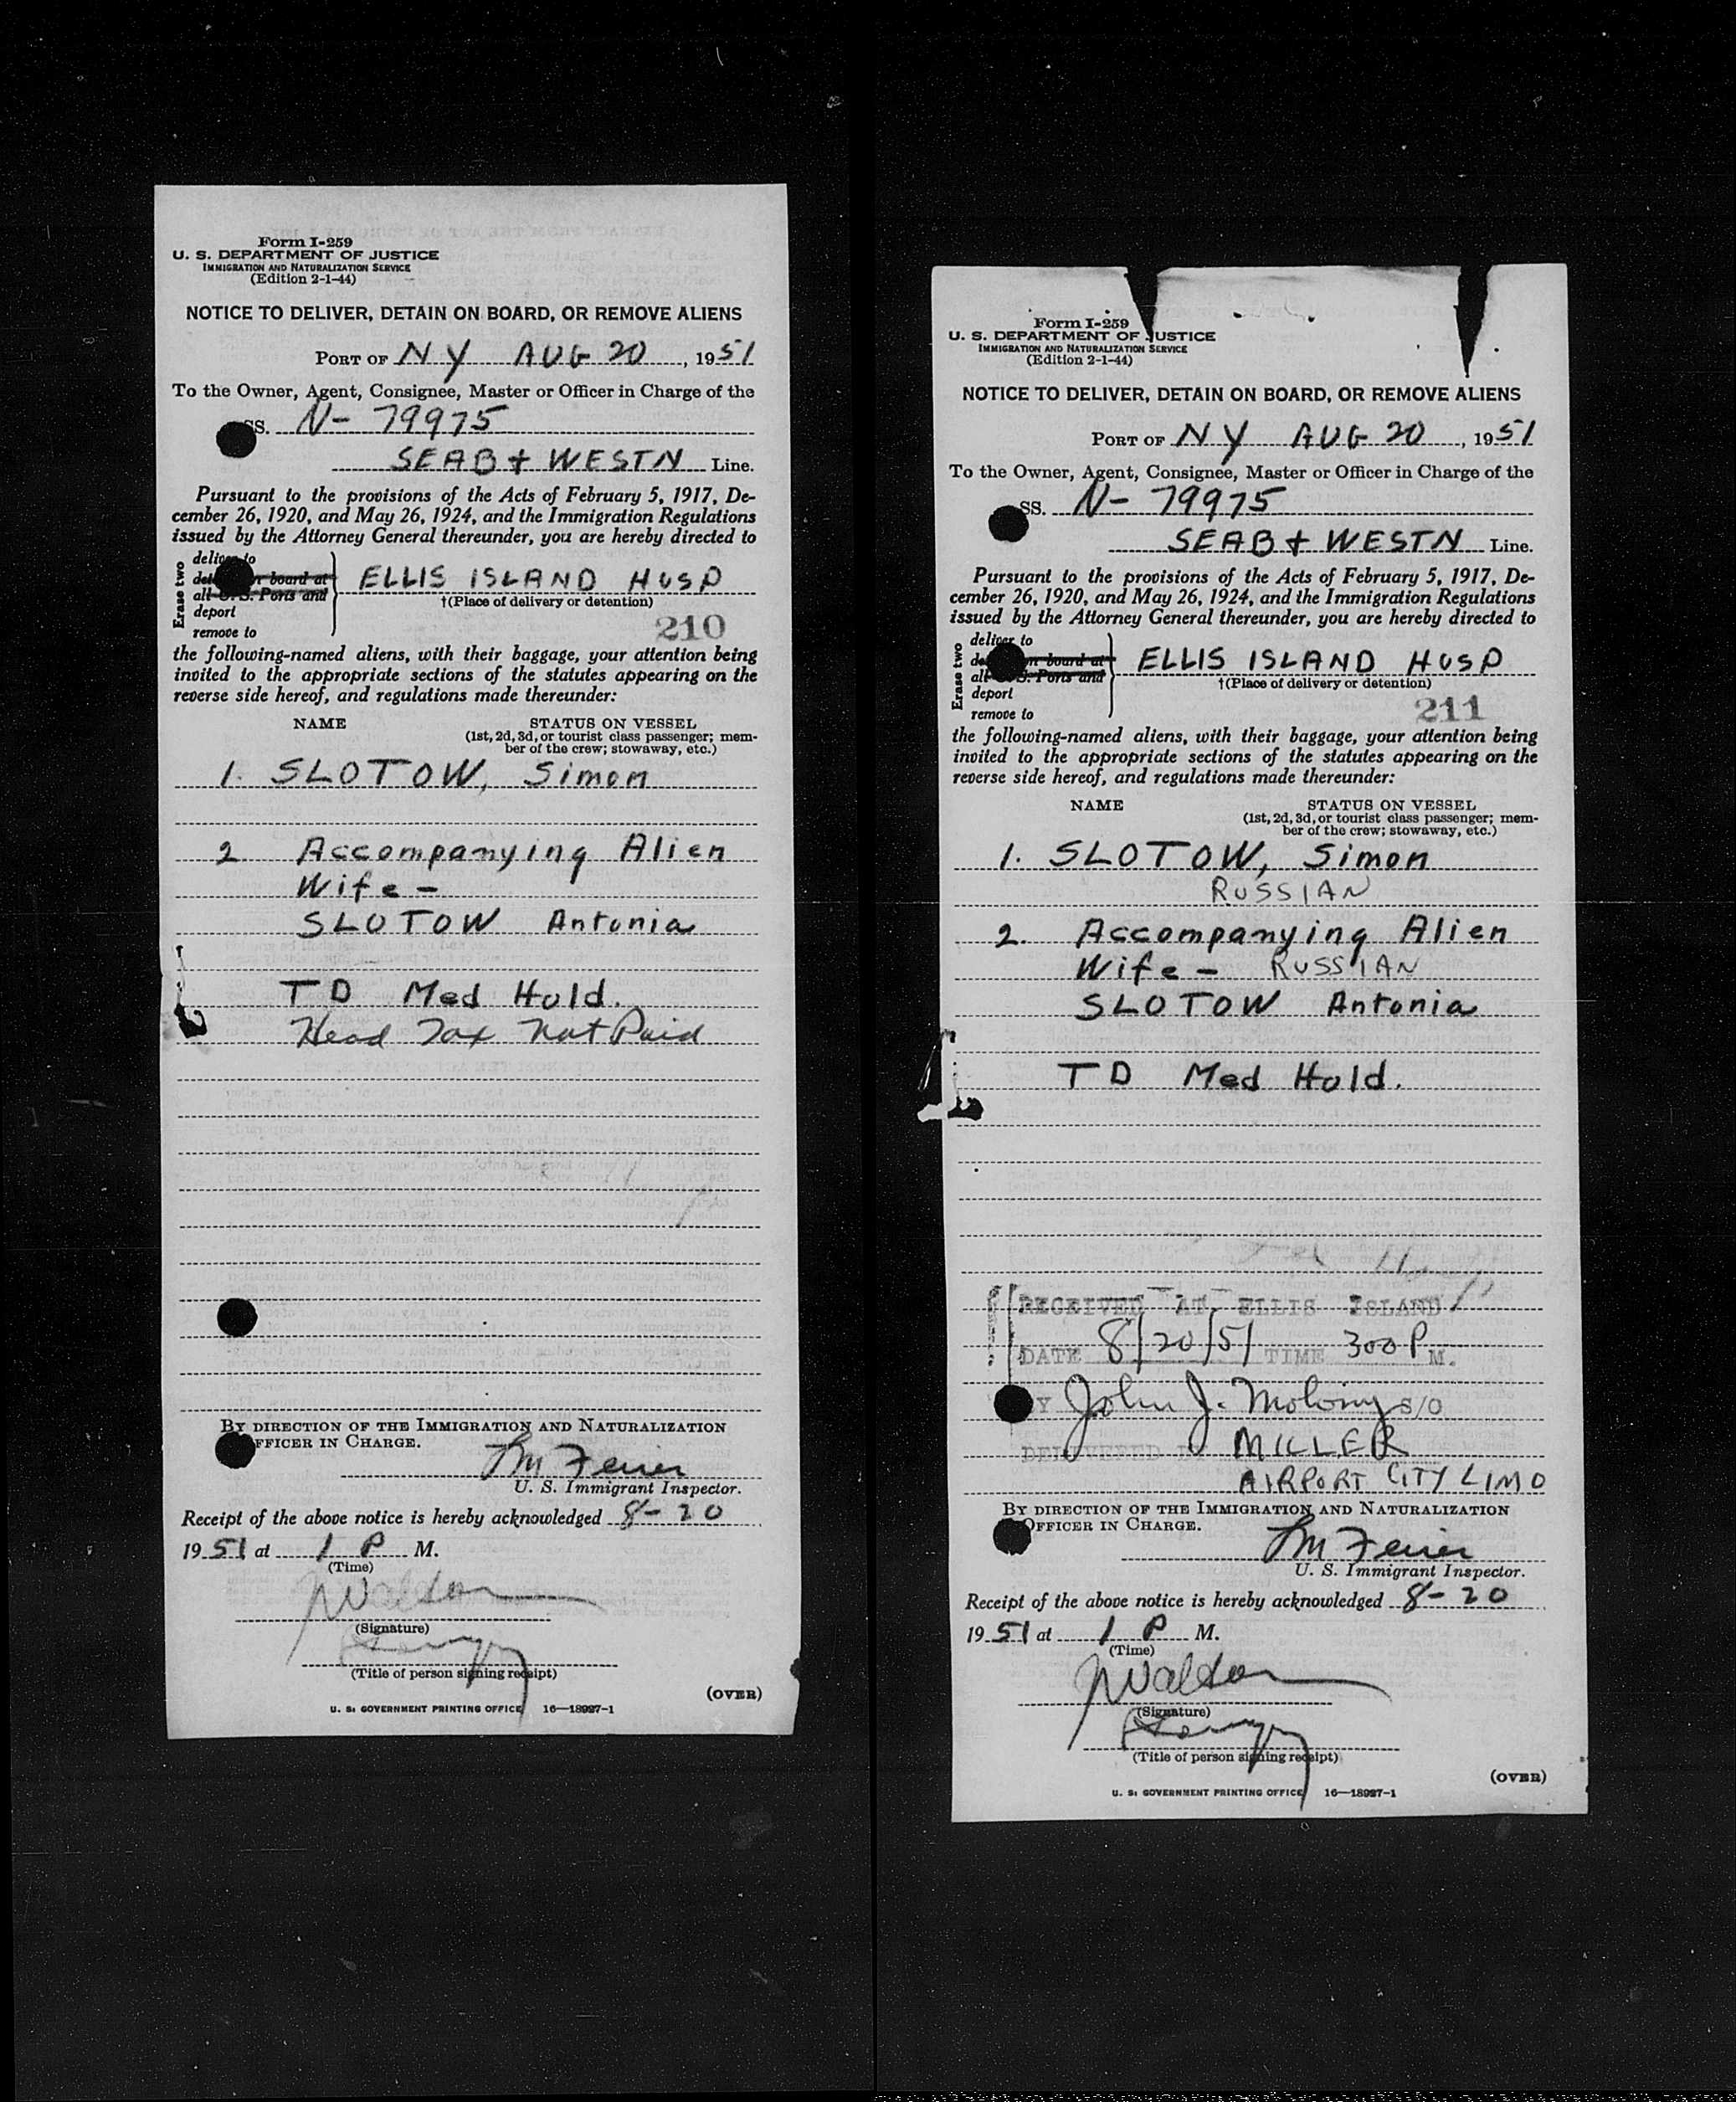 Form I-259
U. S. DEPARTMENT OF JUSTICE
IMMIGRATION AND NATURALIZATION SERVICE
(Edition 2-1-44)
NOTICE TO DELIVER, DETAIN ON BOARD, OR REMOVE ALIENS
PORT OF NY AUG 20, 1951
To the Owner, Agent, Consignee, Master or Officer in Charge of the
SS. N- 79975
SEAB + WESTN Line.
Pursuant to the provisions of the Acts of February 5, 1917, De-
cember 26, 1920, and May 26, 1924, and the Immigration Regulations
issued by the Attorney General thereunder, you are hereby directed to
Erase two
deliver to
board at
all U. S. Ports and
deport
remove to
ELLIS ISLAND HOSP
†(Place of delivery or detention)
210
the following-named aliens, with their baggage, your attention being
invited to the appropriate sections of the statutes appearing on the
reverse side hereof, and regulations made thereunder:
NAME STATUS ON VESSEL
(1st, 2d, 3d, or tourist class passenger; mem-
ber of the crew; stowaway, etc.)
1. SLOTOW, Simon
2 Accompanying Alien
Wife -
SLOTOW Antonia
TD Med Hold.
Head Tax Not Paid
BY DIRECTION OF THE IMMIGRATION AND NATURALIZATION
OFFICER IN CHARGE.
U. S. Immigrant Inspector.
Receipt of the above notice is hereby acknowledged 8-20
1951 at 1 P M.
(Time)
(Signature)
(Title of person signing receipt)
(OVER)
U. S. GOVERNMENT PRINTING OFFICE 16—18927-1
Form I-259
U. S. DEPARTMENT OF JUSTICE
IMMIGRATION AND NATURALIZATION SERVICE
(Edition 2-1-44)
NOTICE TO DELIVER, DETAIN ON BOARD, OR REMOVE ALIENS
PORT OF NY AUG 20, 1951
To the Owner, Agent, Consignee, Master or Officer in Charge of the
SS. N- 79975
SEAB + WESTN Line.
Pursuant to the provisions of the Acts of February 5, 1917, De-
cember 26, 1920, and May 26, 1924, and the Immigration Regulations
issued by the Attorney General thereunder, you are hereby directed to
Erase two
deliver to
board at
all U. S. Ports and
deport
remove to
ELLIS ISLAND HOSP
†(Place of delivery or detention)
211
the following-named aliens, with their baggage, your attention being
invited to the appropriate sections of the statutes appearing on the
reverse side hereof, and regulations made thereunder:
NAME STATUS ON VESSEL
(1st, 2d, 3d, or tourist class passenger; mem-
ber of the crew; stowaway, etc.)
1. SLOTOW, Simon
RUSSIAN
2. Accompanying Alien
Wife - RUSSIAN
SLOTOW Antonia
TD Med Hold.
RECEIVED AT ELLIS ISLAND
DATE 8/20/51 TIME 300 P M.
John J. Molony S/O
MILLER
AIRPORT CITY LIMO
BY DIRECTION OF THE IMMIGRATION AND NATURALIZATION
OFFICER IN CHARGE.
U. S. Immigrant Inspector.
Receipt of the above notice is hereby acknowledged 8-20
1951 at 1 P M.
(Time)
(Signature)
(Title of person signing receipt)
(OVER)
U. S. GOVERNMENT PRINTING OFFICE 16—18927-1